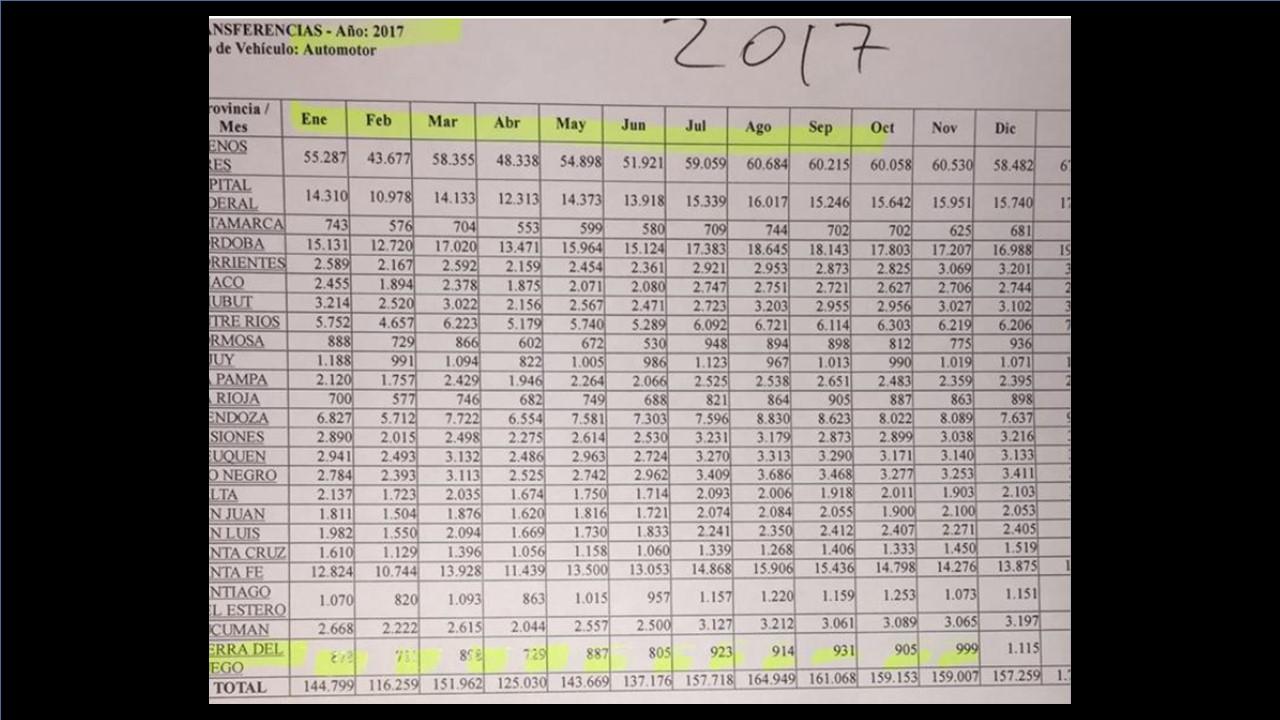 ANSFERENCIAS - Año: 2017
de Vehículo: Automotor
2017
rovincia / Mes Ene Feb Mar Abr May Jun Jul Ago Sep Oct Nov Dic
ENOS RES 55.287 43.677 58.355 48.338 54.898 51.921 59.059 60.684 60.215 60.058 60.530 58.482
PITAL DERAL 14.310 10.978 14.133 12.313 14.373 13.918 15.339 16.017 15.246 15.642 15.951 15.740
TAMARCA 743 576 704 553 599 580 709 744 702 702 625 681
RDOBA 15.131 12.720 17.020 13.471 15.964 15.124 17.383 18.645 18.143 17.803 17.207 16.988
RRIENTES 2.589 2.167 2.592 2.159 2.454 2.361 2.921 2.953 2.873 2.825 3.069 3.201
ACO 2.455 1.894 2.378 1.875 2.071 2.080 2.747 2.751 2.721 2.627 2.706 2.744
UBUT 3.214 2.520 3.022 2.156 2.567 2.471 2.723 3.203 2.955 2.956 3.027 3.102
TRE RIOS 5.752 4.657 6.223 5.179 5.740 5.289 6.092 6.721 6.114 6.303 6.219 6.206
RMOSA 888 729 866 602 672 530 948 894 898 812 775 936
UY 1.188 991 1.094 822 1.005 986 1.123 967 1.013 990 1.019 1.071
PAMPA 2.120 1.757 2.429 1.946 2.264 2.066 2.525 2.538 2.651 2.483 2.359 2.395
RIOJA 700 577 746 682 749 688 821 864 905 887 863 898
ENDOZA 6.827 5.712 7.722 6.554 7.581 7.303 7.596 8.830 8.623 8.022 8.089 7.637
SIONES 2.890 2.015 2.498 2.275 2.614 2.530 3.231 3.179 2.873 2.899 3.038 3.216
UQUEN 2.941 2.493 3.132 2.486 2.963 2.724 3.270 3.313 3.290 3.171 3.140 3.133
O NEGRO 2.784 2.393 3.113 2.525 2.742 2.962 3.409 3.686 3.468 3.277 3.253 3.411
LTA 2.137 1.723 2.035 1.674 1.750 1.714 2.093 2.006 1.918 2.011 1.903 2.103
N JUAN 1.811 1.504 1.876 1.620 1.816 1.721 2.074 2.084 2.055 1.900 2.100 2.053
N LUIS 1.982 1.550 2.094 1.669 1.730 1.833 2.241 2.350 2.412 2.407 2.271 2.405
NTA CRUZ 1.610 1.129 1.396 1.056 1.158 1.060 1.339 1.268 1.406 1.333 1.450 1.519
NTA FE 12.824 10.744 13.928 11.439 13.500 13.053 14.868 15.906 15.436 14.798 14.276 13.875
NTIAGO EL ESTERO 1.070 820 1.093 863 1.015 957 1.157 1.220 1.159 1.253 1.073 1.151
CUMAN 2.668 2.222 2.615 2.044 2.557 2.500 3.127 3.212 3.061 3.089 3.065 3.197
ERRA DEL EGO 729 887 805 923 914 931 905 999 1.115
TOTAL 144.799 116.259 151.962 125.030 143.669 137.176 157.718 164.949 161.068 159.153 159.007 157.259